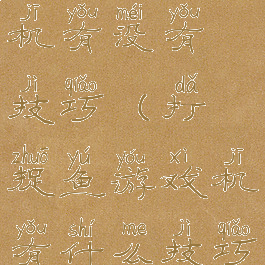 jī yǒu méi yǒu
机有没有
jì qiǎo dǎ
技巧（打
zhuō yú yóu xì jī
捉鱼游戏机
yǒu shí me jì qiǎo
有什么技巧